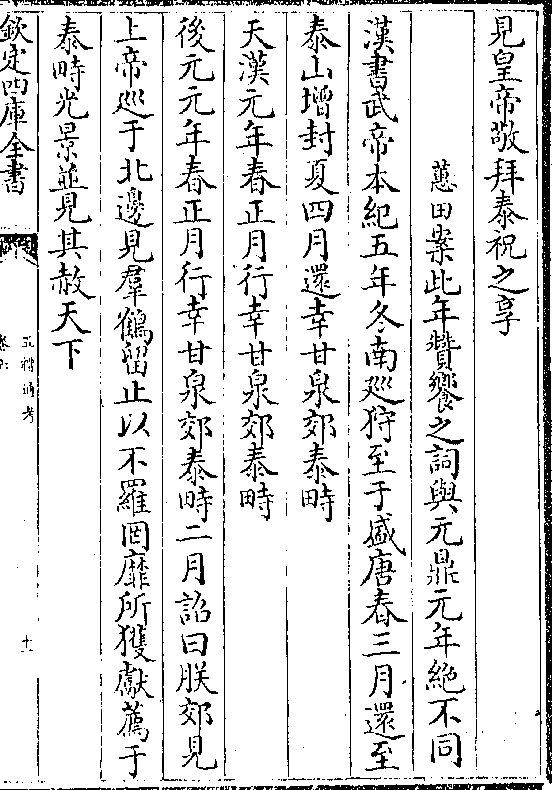 見皇帝敬拜泰祝之享
蕙田案此年贊饗之詞與元鼎元年絶不同
漢書武帝本紀五年冬南巡狩至于盛唐春三月還至
泰山增封夏四月還幸甘泉郊泰畤
天漢元年春正月行幸甘泉郊泰畤
後元元年春正月行幸甘泉郊泰畤二月詔曰朕郊見
上帝巡于北邊見羣鶴留止以不羅罔靡所獲獻薦于
泰畤光景並見其赦天下
欽定四庫全書
五禮通考
十一